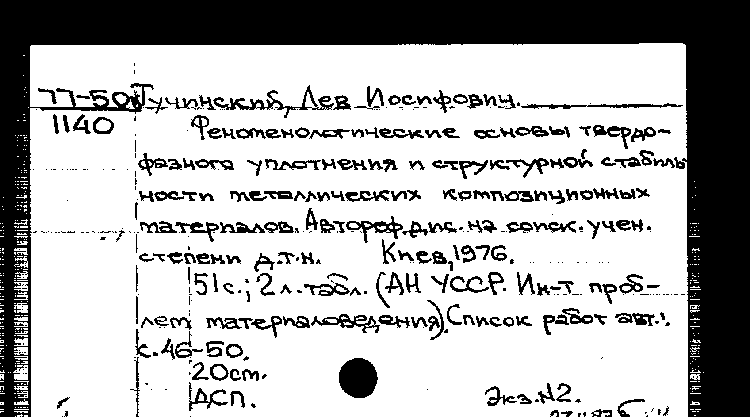 77-50 Тучинский, Лев Иосифович.
1140
Феноменологические основы твердо-
фазного уплотнения и структурной стабиль
ности металлических композиционных
материалов. Автореф.дис.на соиск.учен.
степени д.т.н. Киев,1976.
51с.; 2л.табл. (АН УССР. Ин-т проб-
лем материаловедения). Список работ авт.:
с.46-50.
20см.
ДСП. Экз.N2.